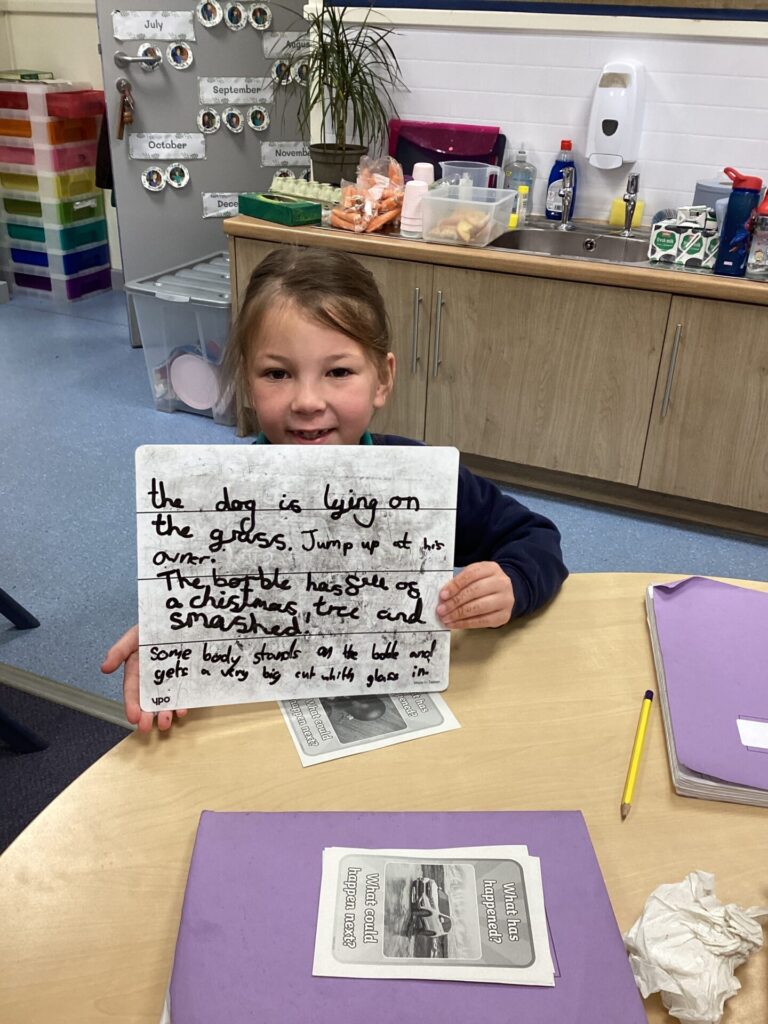 July
August
September
October
November
Dece
the dog is lying on
the grass. Jump up at his
owner.
The borble has fell of
a chistmas tree and
smashed!
Some body stands on the botle and
gets a very big cut whith glass in.
ypo
What could
happen next?
What has
What has
happened?
What could
happen next?